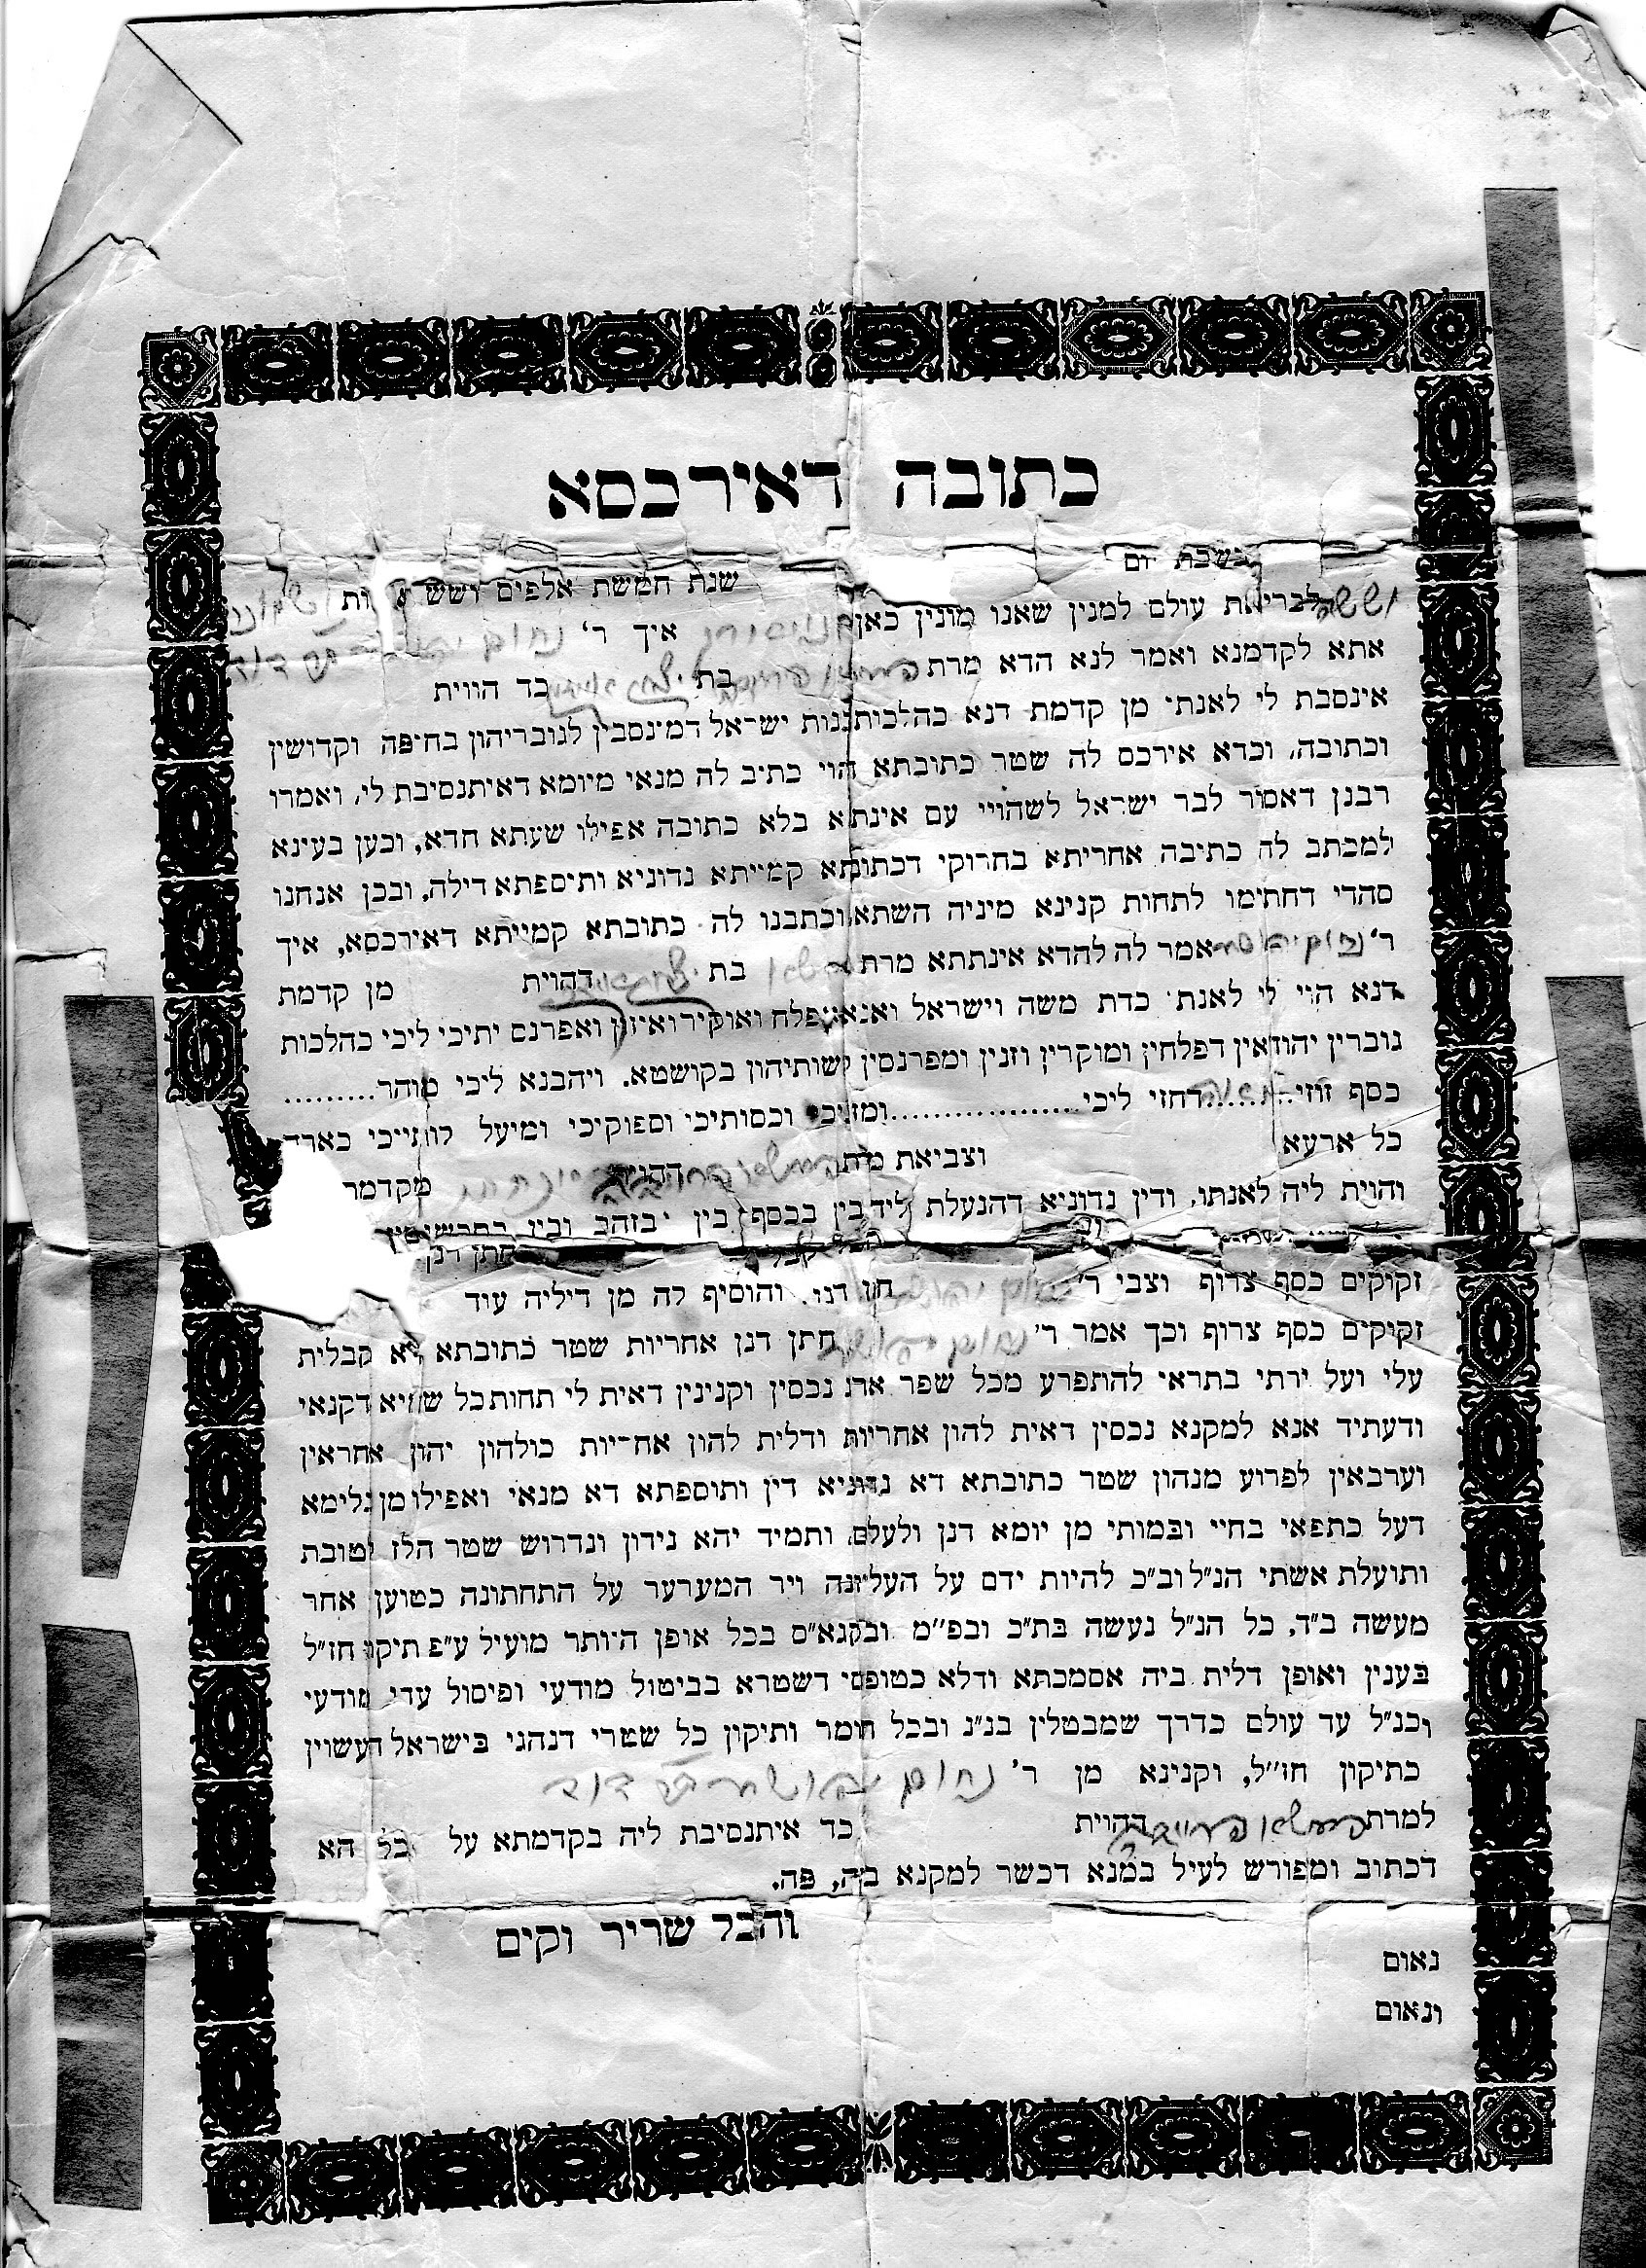 כתובה דאירכסא
בשבת יום שנת חמשת אלפים ושש
וששה לבריאת עולם למנין שאנו מונין כאן איך ר׳ נחום
אתא לקדמנא ואמר לנא הדא מרת בת כד הווית
אינסבת לי לאנתי מן קדמת דנא כהלכות בנות ישראל דמינסבין לגובריהון בחיפה וקדושין
וכתובה, וכדא אירכס לה שטר כתובתא הוי כתיב לה מנאי מיומא דאיתנסיבת לי, ואמרו
רבנן דאסור לבר ישראל לשהויי עם אינתא בלא כתובה אפילו שעתא חדא, וכען בעינא
למכתב לה כתיבה אחריתא בחרוקי דכתובתא קמייתא נדוניא ותיספתא דילה, ובכן אנחנו
סהדי דחתימו לתחות קנינא מיניה השתא וכתבנו לה כתובתא קמייתא דאירכסא, איך
ר׳ נחום יהושע אמר לה להדא אינתתא מרת בת דהוית מן קדמת
דנא הוי לי לאנתי כדת משה וישראל ואנא אפלח ואוקיר ואיזון ואפרנס יתיכי ליכי כהלכות
גוברין יהודאין דפלחין ומוקרין וזנין ומפרנסין לנשותיהון בקושטא. ויהבנא ליכי מוהר.........
כסף זוזי דחזי ליכי..................ומזניכי וכסותיכי וספוקיכי ומיעל לותייכי כאורח
כל ארעא וצביאת מרת דהוית מקדמת
והוית ליה לאנתו, ודין נדוניא דהנעלת ליה בין בכסף בין בזהב ובין בתכשיטין
חתן דנן
זקוקים כסף צרוף וצבי ר׳ חתן דנן. והוסיף לה מן דיליה עוד
זקוקים כסף צרוף וכך אמר ר׳ נחום יהושע חתן דנן אחריות שטר כתובתא דא קבלית
עלי ועל ירתי בתראי להתפרע מכל שפר ארג נכסין וקנינין דאית לי תחות כל שמיא דקנאי
ודעתיד אנא למקנא נכסין דאית להון אחריות ודלית להון אחריות כולהון יהון אחראין
וערבאין לפרוע מנהון שטר כתובתא דא נדוניא דין ותוספתא דא מנאי ואפילו מן גלימא
דעל כתפאי בחיי ובמותי מן יומא דנן ולעלם, ותמיד יהא נידון ונדרוש שטר הלז לטובת
ותועלת אשתי הנ״ל וב״כ להיות ידם על העליונה ויד המערער על התחתונה כטוען אחר
מעשה ב״ד, כל הנ״ל נעשה בת״כ ובפ״מ ובקגא״ס בכל אופן היותר מועיל ע״פ תיקון חז״ל
בענין ואופן דלית ביה אסמכתא ודלא כטופסי דשטרא בביטול מודעי ופיסול עדי מודעי
וכנ״ל עד עולם כדרך שמבטלין בנ״נ ובכל חומר ותיקון כל שטרי דנהגי בישראל דעשוין
כתיקון חז״ל, וקנינא מן ר׳ נחום יהושע בר דוד
למרת דהוית כד איתנסיבת ליה בקדמתא על כל הא
דכתוב ומפורש לעיל במנא דכשר למקנא ביה, פה.
והכל שריר וקים
נאום
ונאום